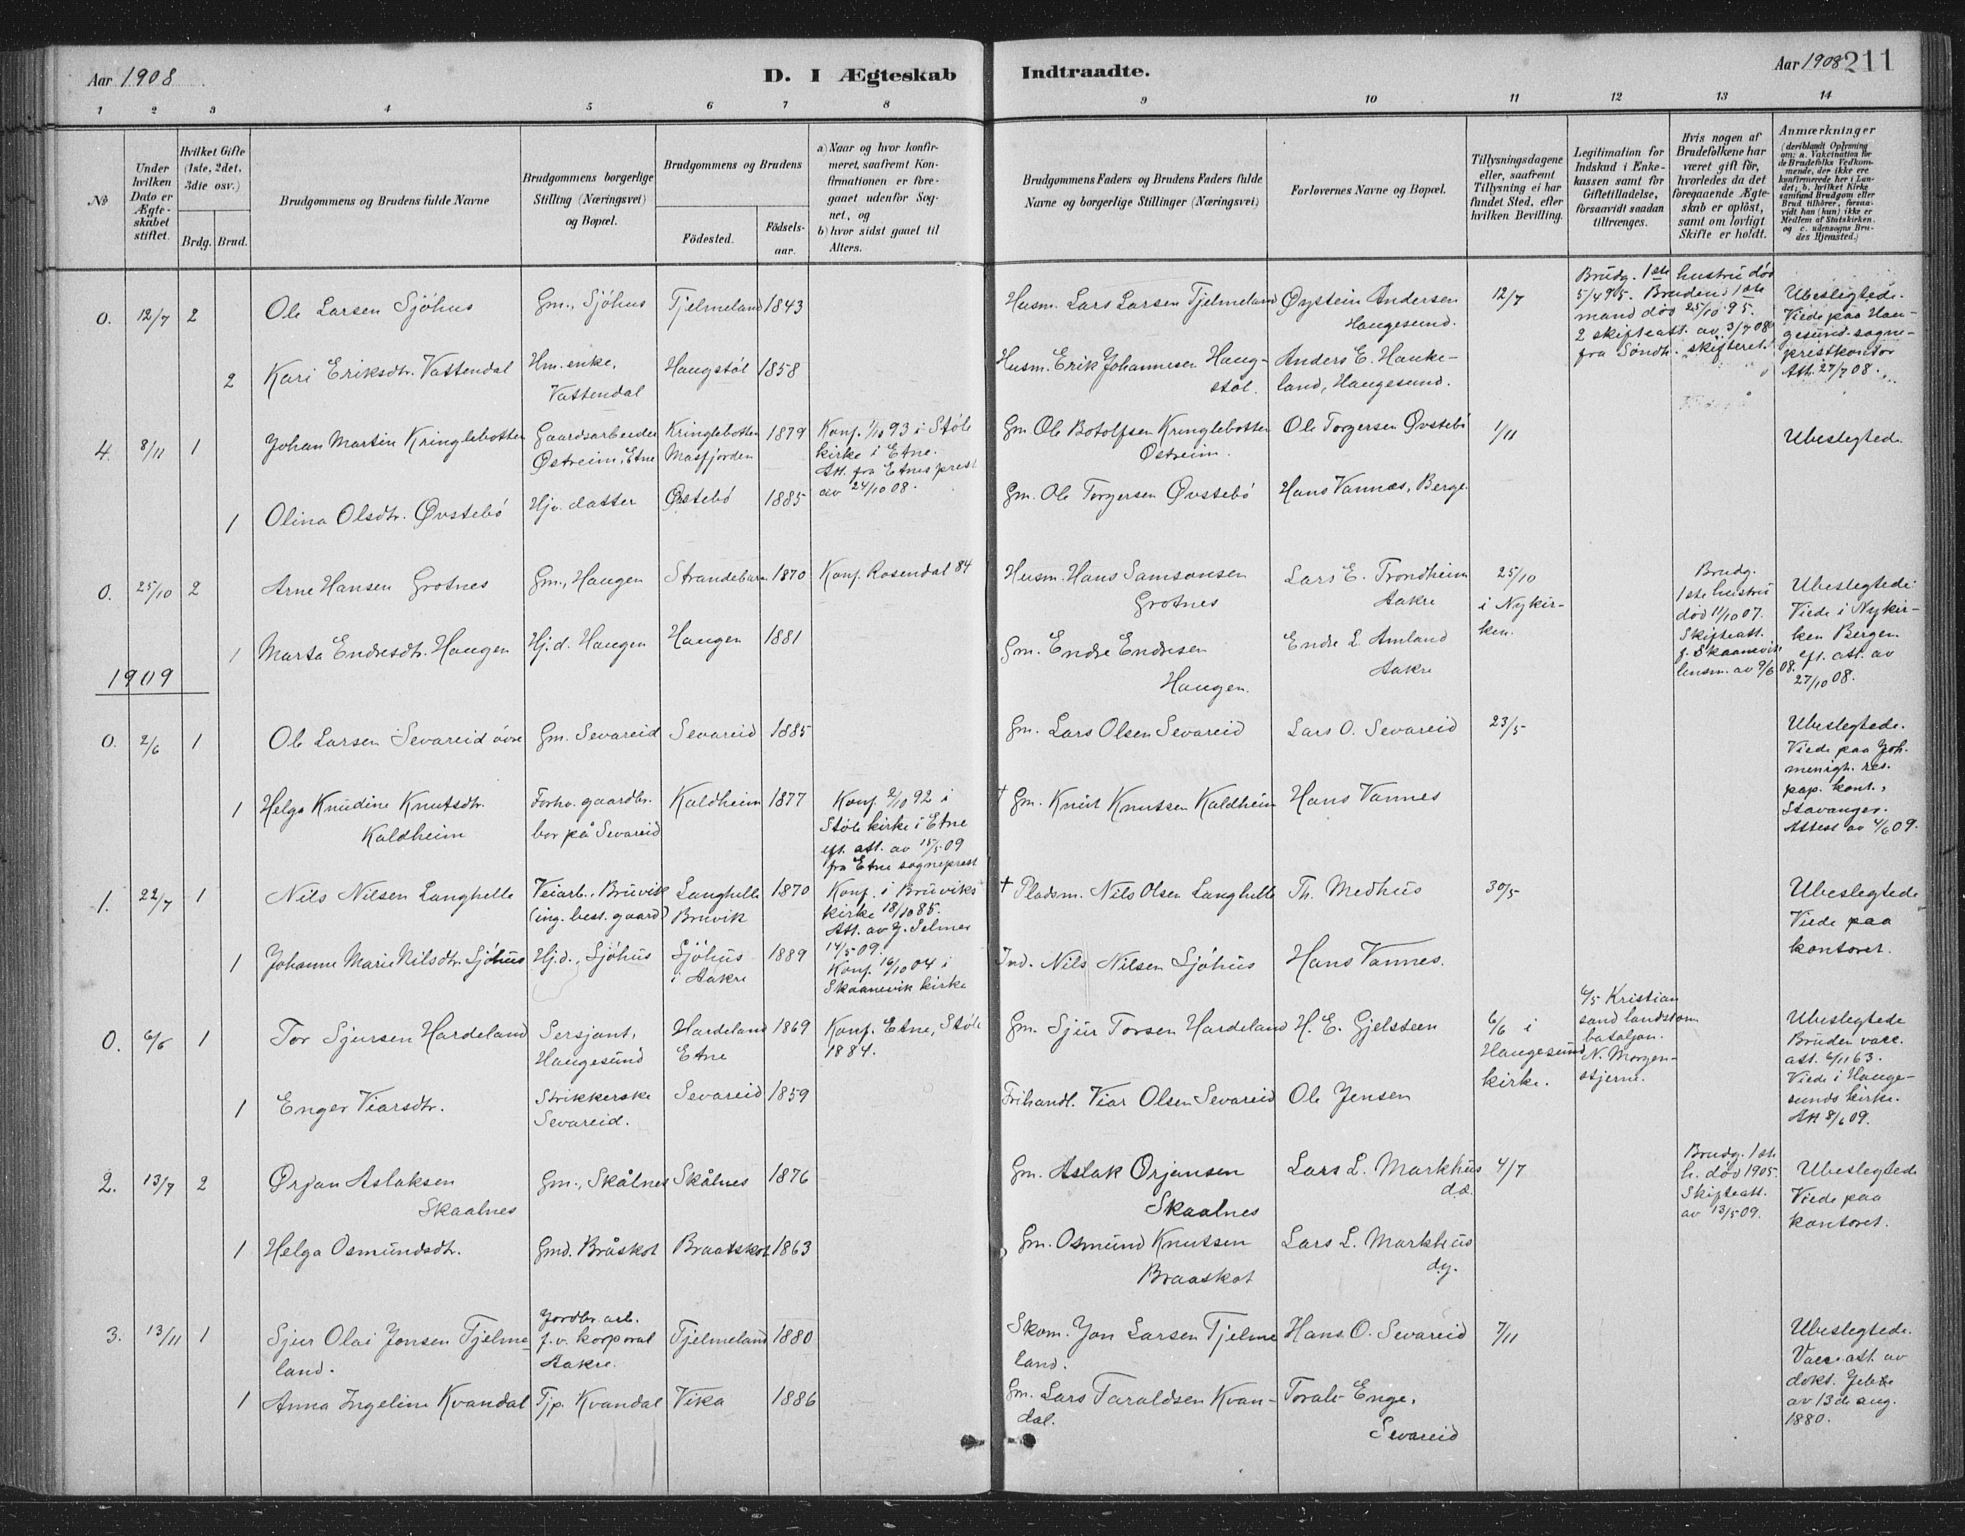 Aar 1908
D. I Ægteskab
Indtraadte.
Aar 1908 211
1 2 3 4 5 6 7 8 9 10 11 12 13 14
No
Under hvilken Dato er Ægteskabet stiftet.
Hvilket Gifte (1ste, 2det, 3die osv.)
Brdg. Brud.
Brudgommens og Brudens fulde Navne
Brudgommens borgerlige Stilling (Næringsvei) og Bopæl.
Brudgommens og Brudens
Fødested.
Fødselsaar.
a) Naar og hvor konfirmeret, saafremt Konfirmationen er foregaaet udenfor Sognet, og
b) hvor sidst gaaet til Alters.
Brudgommens Faders og Brudens Faders fulde Navne og borgerlige Stillinger (Næringsvei)
Forlovernes Navne og Bopæl.
Tillysningsdagene eller, saafremt Tillysning ei har fundet Sted, efter hvilken Bevilling.
Legitimation for Indskud i Enkekassen samt for Giftetilladelse, forsaavidt saadan tiltrænges.
Hvis nogen af Brudefolkene har været gift før, hvorledes da det foregaaende Ægteskab er opløst, samt om lovligt Skifte er holdt.
Anmærkninger
(deriblandt Oplysning om: a. Vakcination for de Brudefolks Vedkommende, der ikke ere konfirmerede her i Landet; b. hvilket Kirkesamfund Brudgom eller Brud tilhører, forsaavidt han (hun) ikke er Medlem af Statskirken. og c. udensogns Brudes Hjemsted.)
0. 12/7 2 Ole Larsen Sjöhus Gm., Sjöhus Tjelmeland 1843
Husm. Lars Larsen Tjelmeland Øystein Andersen Haugesund. 12/7
Brudg. 1ste hustru död 5/4 95. Brudens 1ste mand död 25/10 95. 2 skifteatt. av 3/7 08 fra Söndh. skifteret.
Ubeslegtede. Viede paa Haugesund sogneprestkontor Att. 27/7 08.
2 Kari Eriksdtr. Vattendal Hm. enke, Vattendal Haugstöl 1858
Husm. Erik Johannesen Haugstöl. Anders E. Haukeland, Haugesund.
4. 8/11 1 Johan Martin Kringlebotten Gaardsarbeider Østreim, Etne Kringlebotten Masfjorden 1879
Konf. 1/10 93 i Støle kirke i Etne. Att. fra Etnes prest av 24/10 08.
Gm. Ole Botolfsen Kringlebotten Østreim. Ole Torgersen Øvstebö 1/11 Ubeslegtede.
1 Olina Olsdtr. Øvstebö Hjv. datter Østebö 1885
Gm. Ole Torgersen Øvstebö Hans Vannes, Berge.
0. 25/10 2 Arne Hansen Grotnes Gm., Haugen Strandebarm 1870 Konf. Rosendal 84
Husm. Hans Samsonsen Grotnes Lars E. Trondheim Aakre 25/10 i Nykirken.
Brudg. 1ste hustru död 11/10 07. Skifteatt. f. Skaanevik lensm. av 9/6 08.
Ubeslegtede. Viede i Nykirken Bergen eft. att. av 27/10 08.
1 Marta Endresdtr. Haugen Hj.d. Haugen Haugen 1881
Gm. Endre Endresen Haugen. Endre L. Amland Aakre
1909
0. 2/6 1 Ole Larsen Sevareid övre Gm. Sevareid Sevareid 1885
Gm. Lars Olsen Sevareid Lars O. Sevareid 23/5
Ubeslegtede. Viede paa Joh. menigh. res. kap. kont., Stavanger. Attest av 4/6 09.
1 Helga Knudine Knutsdtr. Kaldheim Forhv. gaardbr. bor på Sevareid Kaldheim 1877
Konf. 2/10 92 i Støle kirke i Etne eft. att. av 15/5 09 fra Etne sogneprest
† Gm. Knut Knutsen Kaldheim Hans Vannes
1. 22/7 1 Nils Nilsen Langhelle Veiarb., Bruvik (ing. best. gaard) Langhelle Bruvik 1870
Konf. i Bruviks kirke 18/10 85. Att. av J. Selmer 14/5 09.
† Pladsm. Nils Olsen Langhelle Th. Medhus 30/5 Ubeslegtede Viede paa kontoret.
1 Johanne Marie Nilsdtr. Sjöhus Hj.d., Sjöhus Sjöhus i Aakre 1889
Konf. 16/10 04 i Skaanevik kirke
Ind. Nils Nilsen Sjöhus Hans Vannes.
0. 6/6 1 Tor Sjursen Hardeland Sersjant, Haugesund Hardeland Etne 1869 Konf. Etne, Støle 1884.
Gm. Sjur Torsen Hardeland H. E. Gjelsteen 6/6 i Haugesund kirke.
6/5 Kristiansand landstorm bataljon. N. Morgenstjerne.
Ubeslegtede Bruden vacc. att. 6/11 63. Viede i Haugesunds kirke. Att 8/6 09.
1 Enger Viarsdtr. Strikkerske Sevareid. Sevareid 1859
Frihandl. Viar Olsen Sevareid Ole Jensen
2. 13/7 2 Ørjan Aslaksen Skaalnes Gm., Skålnes Skålnes 1876
Gm. Aslak Ørjansen Skaalnes Lars L. Markhus d.æ. 4/7
Brudg. 1ste h. död 1905. Skifteatt. av 13/5 09.
Ubeslegtede Viede paa kontoret.
1 Helga Osmundsdtr. Gmd. Bråskot Braatskot 1863
Gm. Osmund Knutsen Braaskot Lars L. Markhus d.y.
3. 13/11 1 Sjur Olai Jonsen Tjelmeland. Jordbr. arb. f.v. korporal Aakre. Tjelmeland 1880
Skom. Jon Larsen Tjelmeland. Hans O. Sevareid 7/11
Ubeslegtede. Vacc att. av dokt. av 13de aug. 1880.
1 Anna Ingeline Kvandal Tjp. Kvandal Vika 1886
Gm. Lars Taraldsen Kvandal. Enge, Sevareid